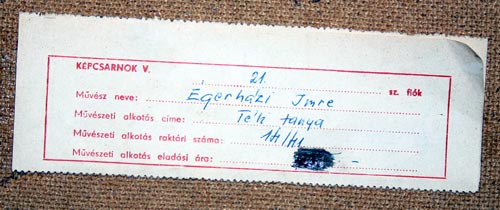 KÉPCSARNOK V.
21. sz. fiók
Művész neve: Égerházi Imre
Művészeti alkotás címe: Téli tanya
Művészeti alkotás raktári száma:
Művészeti alkotás eladási ára: -